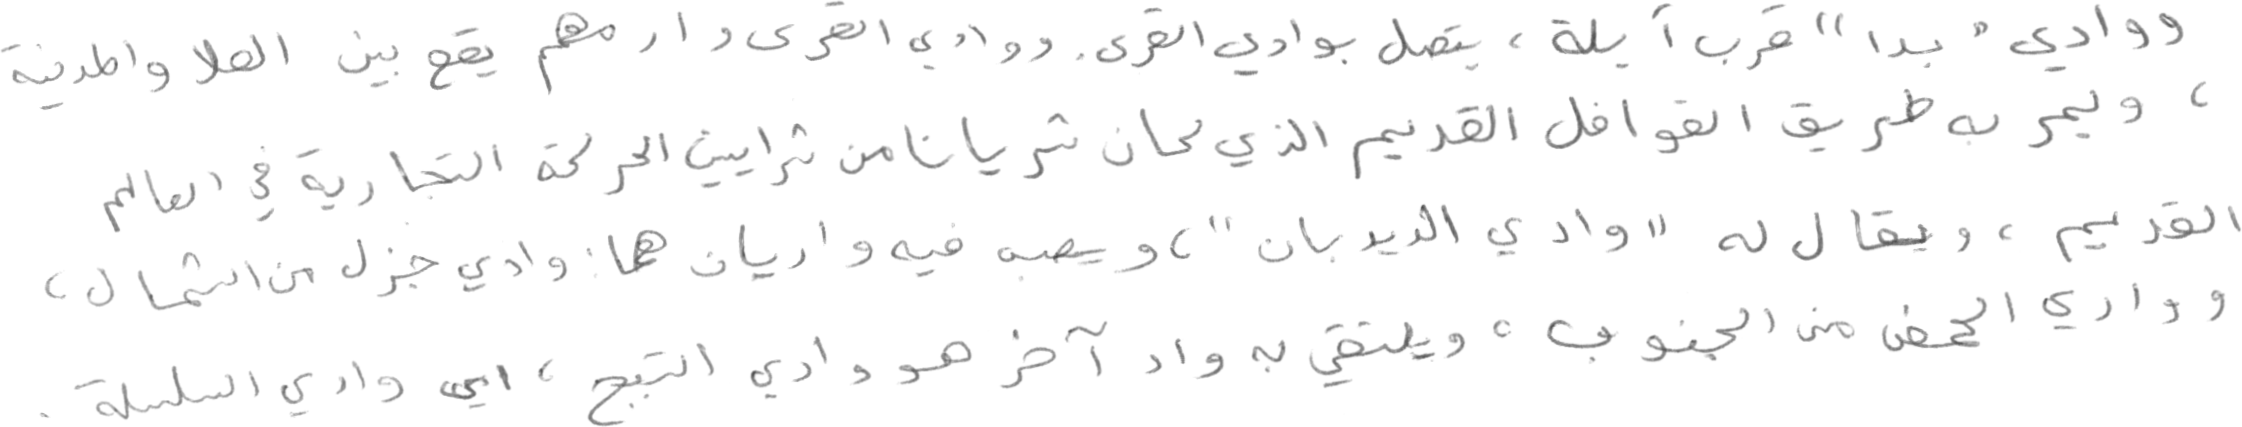 ووادي "بدا" قرب آيلة، يتصل بوادي القرى. ووادي القرى واد مهم يقع بين العلا والمدينة
، ويمر به طريق القوافل القديم الذي كان شريانا من شرايين الحركة التجارية في العالم
القديم، ويقال له "وادي الديدبان"، ويصب فيه واديان هما: وادي جزل من الشمال،
ووادي الحمض من الجنوب، ويلتقي به واد آخر هو وادي التبج، اي وادي السلسلة.